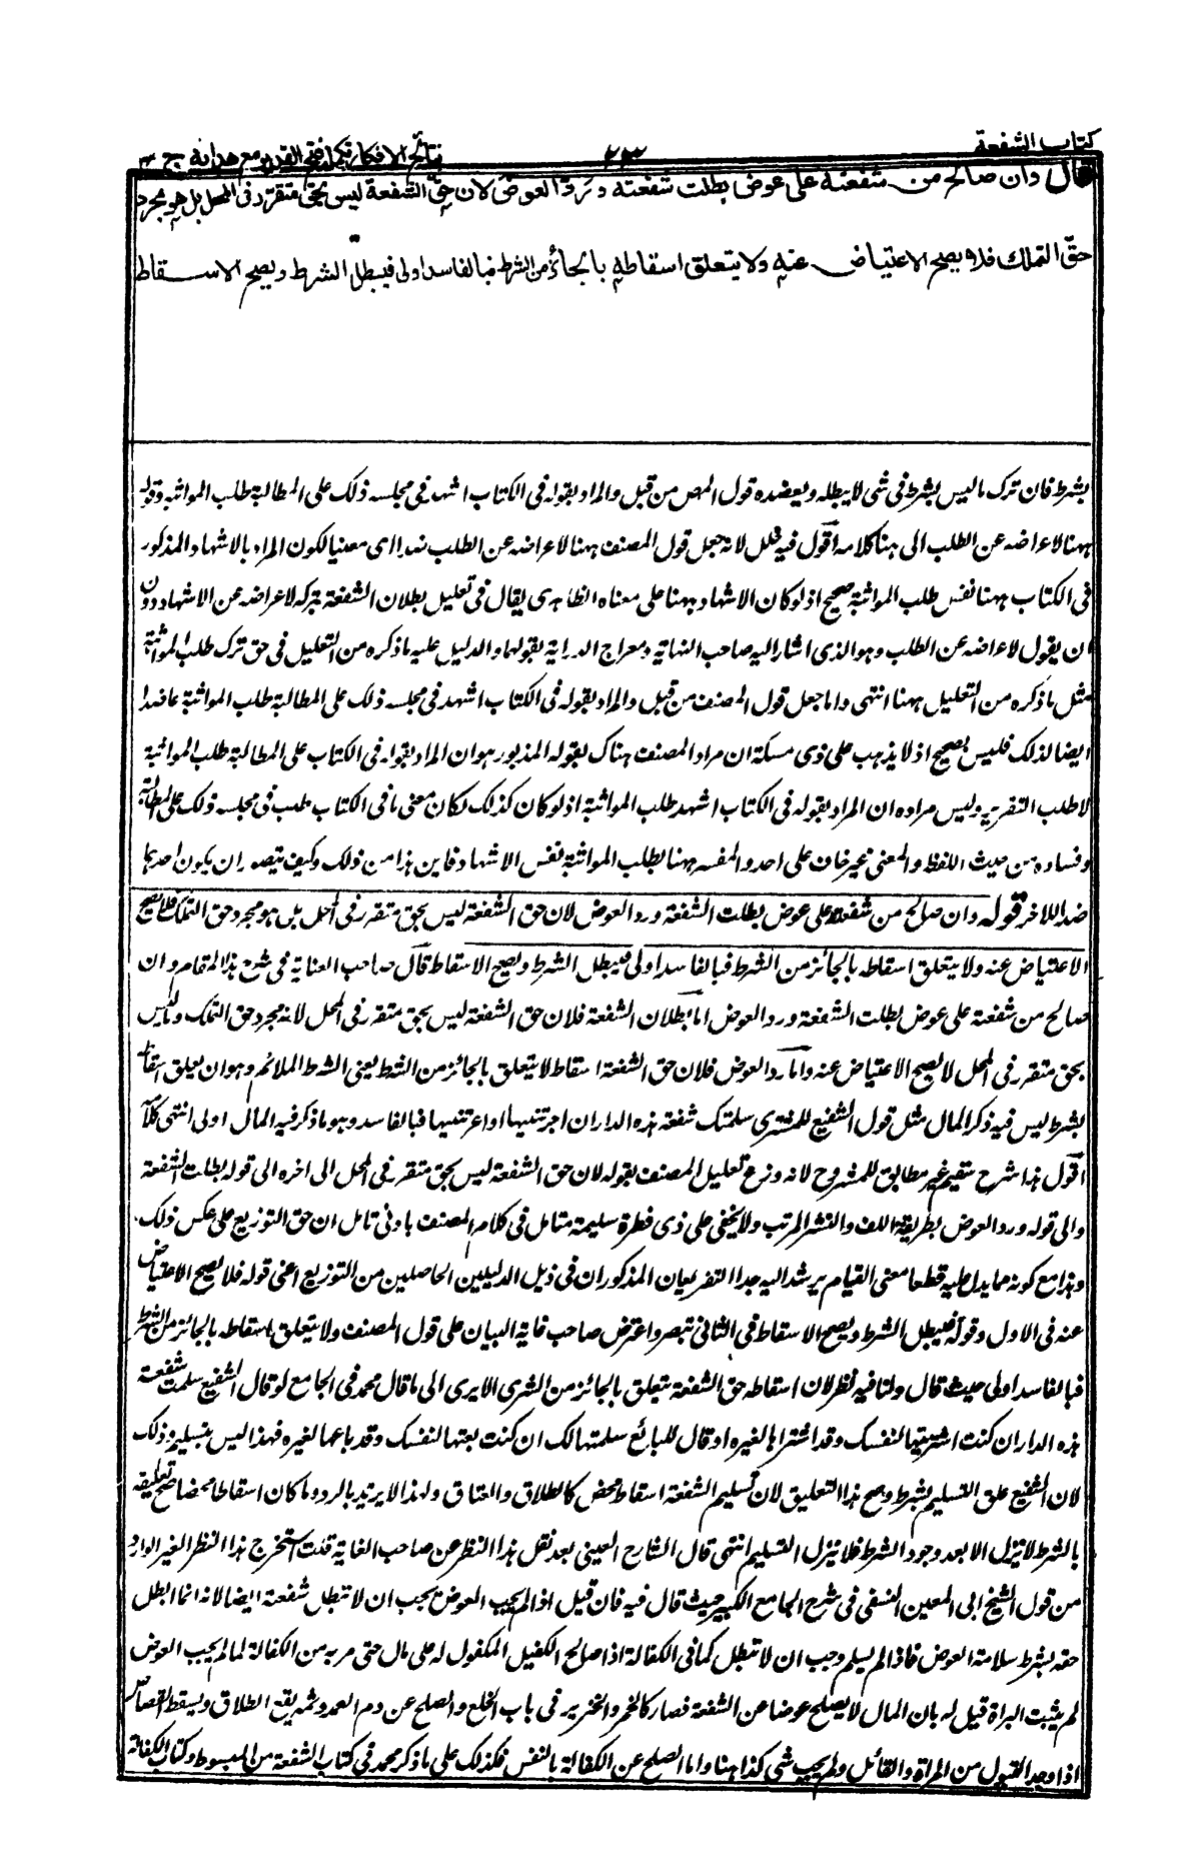 كتاب الشفعة ٢٢٣ نتائج الافكار تكملة فتح القدير مع هداية ج ٣
قال وان صالح من شفعته على عوض بطلت شفعته ورد العوض لان حق الشفعة ليس بحق متقرر فى المحل بل هو مجرد
حق التملك فلا يصح الاعتياض عنه ولا يتعلق اسقاطه بالجائز من الشرط فبالفاسد اولى فيبطل الشرط ويصح الاسقاط
بشرط فان ترك ما ليس بشرط فى شى لا يبطله ويعضده قول المص من قبل والمراد بقوله فى الكتاب اشهد فى مجلسه ذلك على المطالبة طلب المواثبة وقوله
ههنا لاعراضه عن الطلب الى هنا كلامه اقول فيه خلل لانه جعل قول المصنف ههنا لاعراضه عن الطلب معنيا لكون المراد بالاشهاد المذكور
فى الكتاب ههنا نفس طلب المواثبة صحيح اذ لو كان الاشهاد ههنا على معناه الظاهرى يقال فى تعليل بطلان الشفعة بتركه لاعراضه عن الاشهاد دون
ان يقول لاعراضه عن الطلب وهو الذى اشار اليه صاحب النهاية ومعراج الدراية بقولهما والدليل عليه ما ذكره من التعليل فى حق ترك طلب المواثبة
مثل ما ذكره من التعليل ههنا انتهى واما جعل قول المصنف من قبل والمراد بقوله فى الكتاب اشهد فى مجلسه ذلك على المطالبة طلب المواثبة عاضدا
ايضا لذلك فليس بصحيح اذ لا يذهب على ذى مسكة ان مراد المصنف هناك بقوله المذبور هو ان المراد بقوله فى الكتاب على المطالبة طلب المواثبة
لا طلب التقرير وليس مراده ان المراد بقوله فى الكتاب اشهد طلب المواثبة اذ لو كان كذلك لكان معنى ما فى الكتاب طلب فى مجلسه ذلك على المطالبة
وفساده من حيث اللفظ والمعنى غير خاف على احد والمفسر ههنا بطلب المواثبة نفس الاشهاد فاين هذا من ذلك وكيف يتصور ان يكون احدهما
ضدا للاخر قوله وان صالح من شفعته على عوض بطلت الشفعة ورد العوض لان حق الشفعة ليس بحق متقرر فى المحل بل هو مجرد حق التملك فلا يصح
الاعتياض عنه ولا يتعلق اسقاطه بالجائز من الشرط فبالفاسد اولى فيبطل الشرط ويصح الاسقاط قال صاحب العناية فى شرح هذا المقام وان
صالح من شفعته على عوض بطلت الشفعة ورد العوض اما بطلان الشفعة فلان حق الشفعة ليس بحق متقرر فى المحل لانه مجرد حق التملك وما ليس
بحق متقرر فى المحل لا يصح الاعتياض عنه واما رد العوض فلان حق الشفعة اسقاط لا يتعلق بالجائز من الشرط يعنى الشرط الملائم وهو ان يعلق اسقاطه
بشرط ليس فيه ذكر المال مثل قول الشفيع للمشترى سلمتك شفعة هذه الدار ان اجرتنيها او اعرتنيها فبالفاسد وهو ما ذكر فيه المال اولى انتهى كلامه
اقول هذا شرح سقيم غير مطابق للمشروح لانه وزع تعليل المصنف بقوله لان حق الشفعة ليس بحق متقرر فى المحل الى اخره الى قوله بطلت الشفعة
والى قوله ورد العوض بطريقة اللف والنشر المرتب ولا يخفى على ذى فطرة سليمة متامل فى كلام المصنف بادنى تامل ان حق التوزيع على عكس ذلك
وهذا مع كونه مما يدل عليه قطعا معنى القيام يرشد اليه جدا التفريعان المذكوران فى ذيل الدليلين الحاصلين من التوزيع اعنى قوله فلا يصح الاعتياض
عنه فى الاول وقوله فيبطل الشرط ويصح الاسقاط فى الثانى تبصر واعترض صاحب غاية البيان على قول المصنف ولا يتعلق اسقاطه بالجائز من الشرط
فبالفاسد اولى حيث قال ولنا فيه نظر لان اسقاطه حق الشفعة يتعلق بالجائز من الشرى الا يرى الى ما قال محمد فى الجامع لو قال الشفيع سلمت شفعة
هذه الدار ان كنت اشتريتها لنفسك وقد اشتراها لغيره او قال للبائع سلمتها لك ان كنت بعتها لنفسك وقد باعها لغيره فهذا ليس بتسليم وذلك
لان الشفيع علق التسليم بشرط وصح هذا التعليق لان تسليم الشفعة اسقاط محض كالطلاق والعتاق ولهذا لا يرتد بالرد وما كان اسقاطا محضا صح تعليقه
بالشرط لا ينزل الا بعد وجود الشرط فلا ينزل التسليم انتهى قال الشارح العينى بعد نقل هذا النظر عن صاحب الغاية قلت استخرج هذا النظر الغير الوارد
من قول الشيخ ابى المعين النسفى فى شرح الجامع الكبير حيث قال فيه فان قيل اذا لم يجب العوض يجب ان لا تبطل شفعة ايضا لانه انما ابطل
حقه بشرط سلامة العوض فاذا لم يسلم وجب ان لا تبطل كما فى الكفالة اذا صالح الكفيل المكفول له على مال حتى مر به من الكفالة لما لم يجب العوض
لم يثبت البراة قيل له بان المال لا يصلح عوضا عن الشفعة فصار كالخمر والخنزير فى باب الخلع والصلح عن دم العمد وثمه يقع الطلاق ويسقط القصاص
اذا وجد القبول من المراة والقاتل ولم يجب شى كذا ههنا واما الصلح عن الكفالة بالنفس فكذلك على ما ذكر محمد فى كتاب الشفعة من المبسوط وكتاب الكفالة